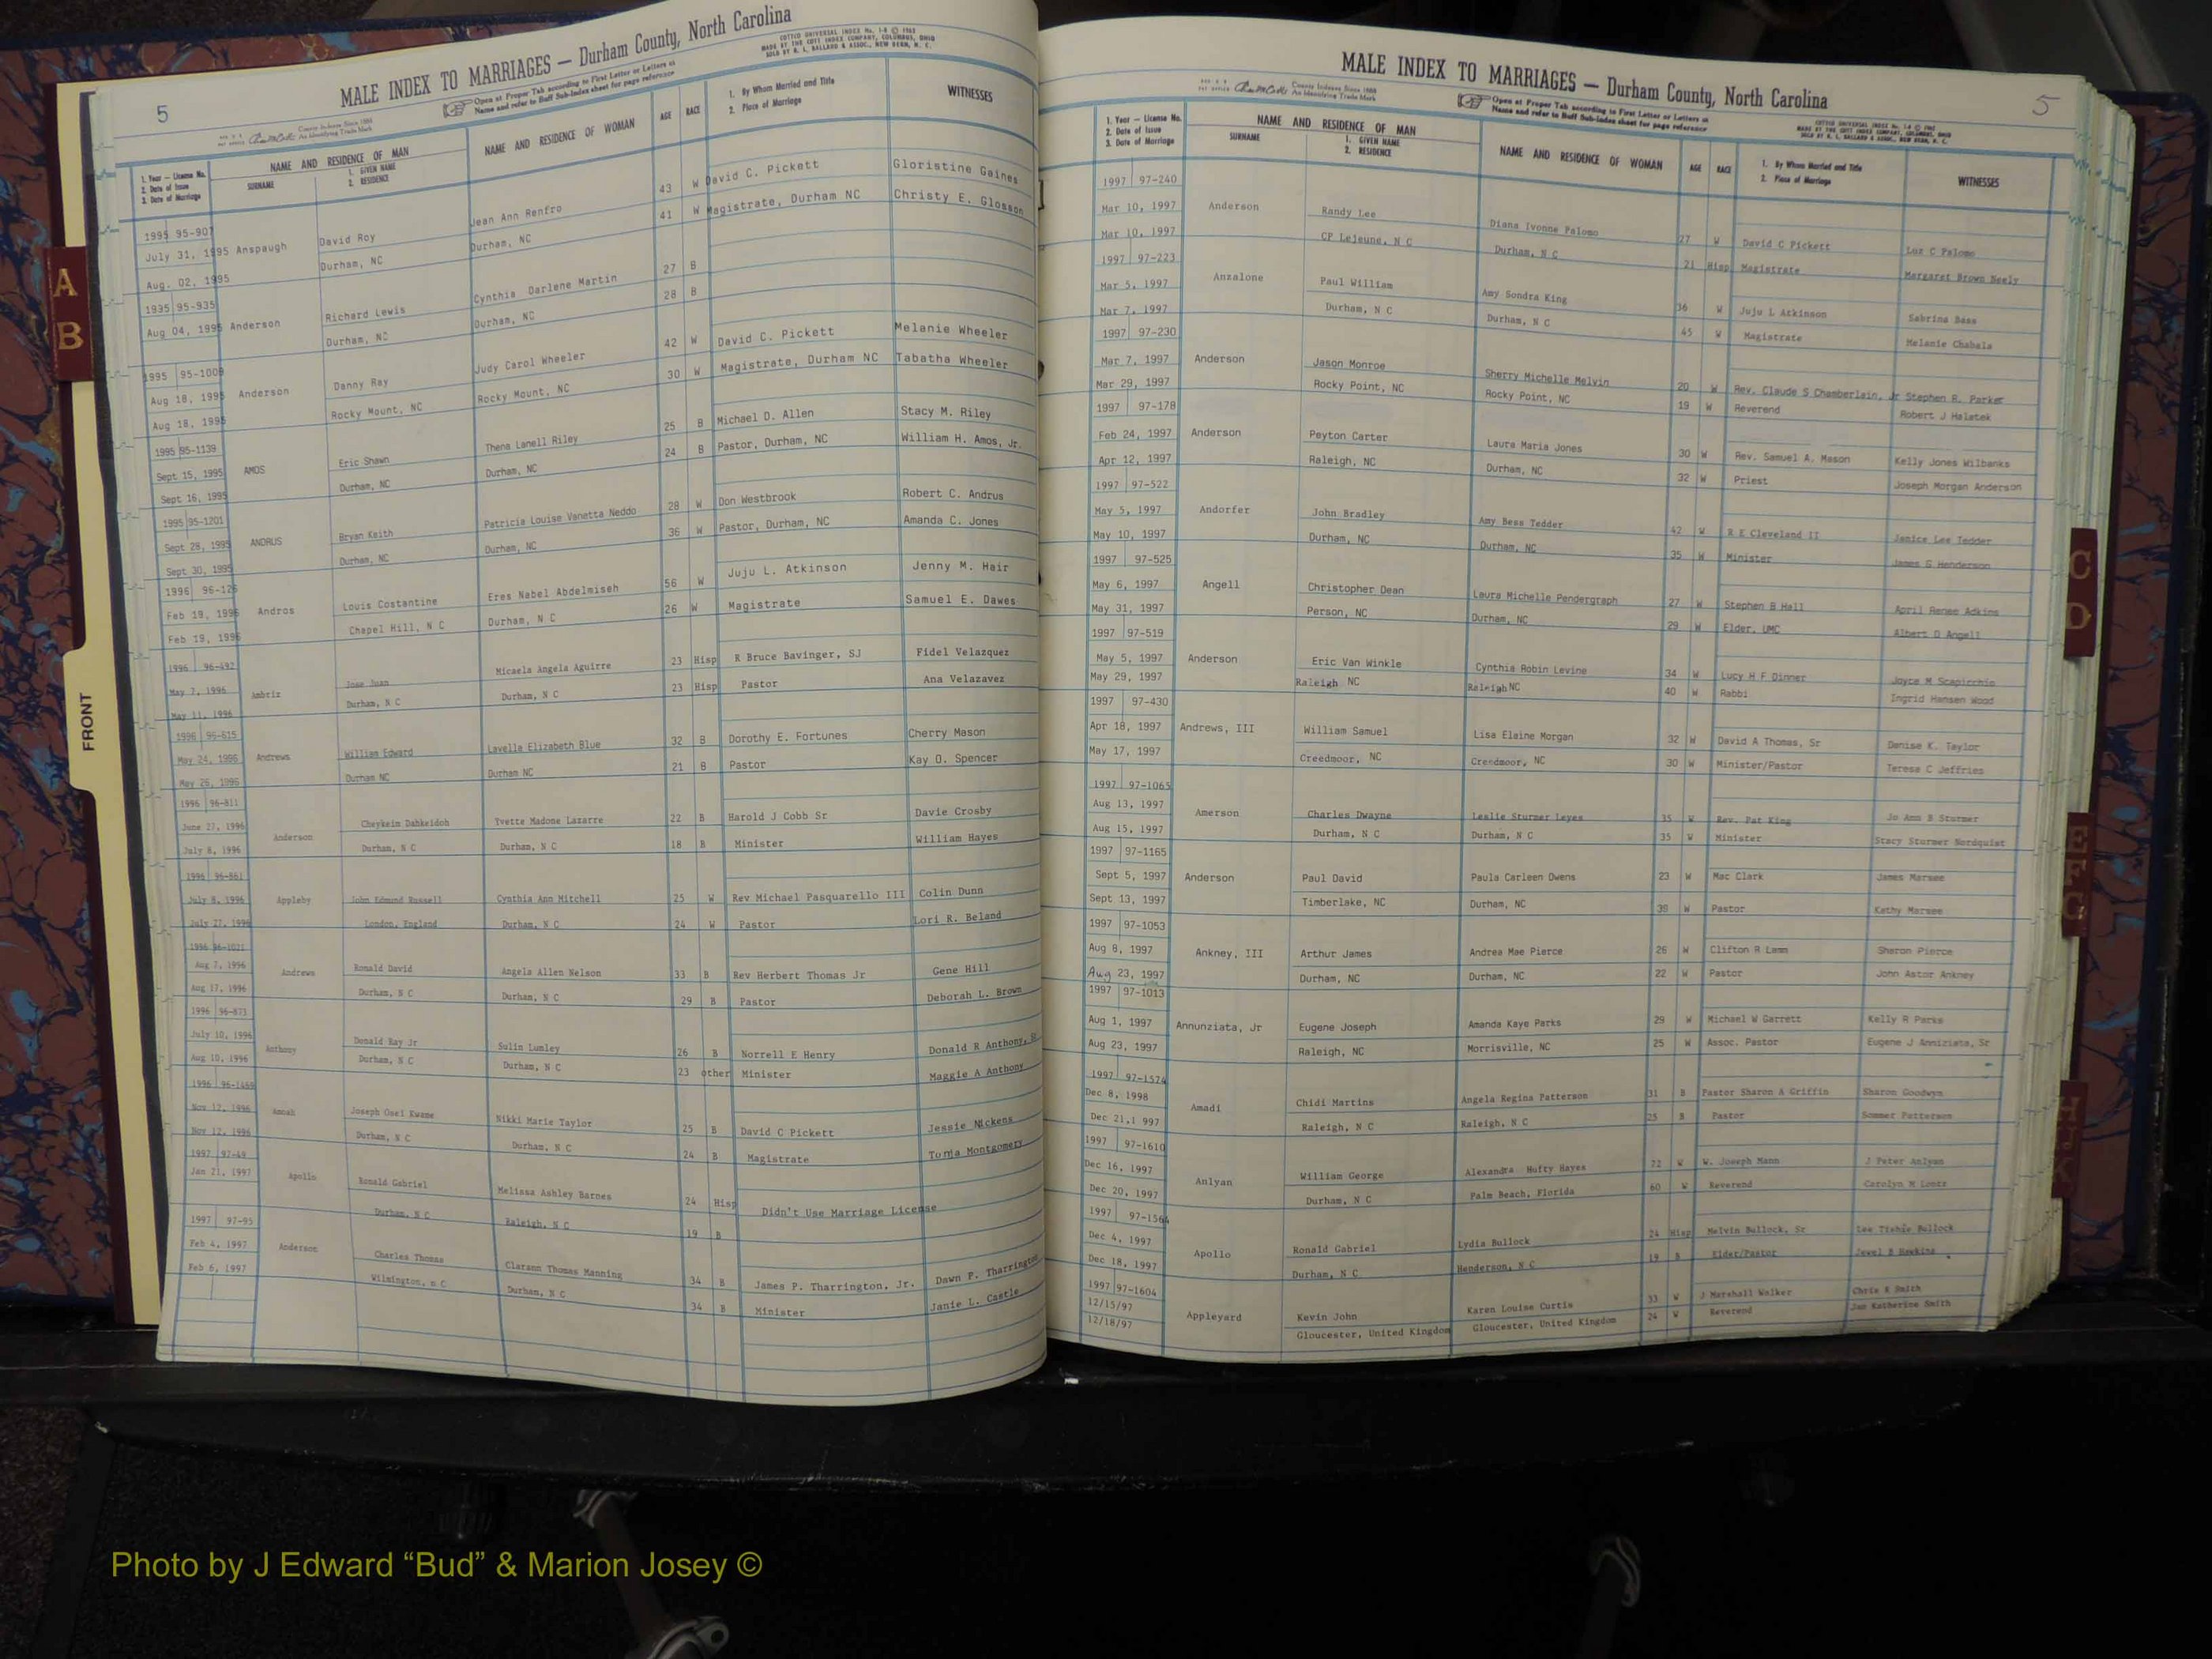 5
MALE INDEX TO MARRIAGES — Durham County, North Carolina
COTTCO UNIVERSAL INDEX No. 1-8 © 1963
MADE BY THE COTT INDEX COMPANY, COLUMBUS, OHIO
SOLD BY R. L. BALLARD & ASSOC., NEW BERN, N. C.
County Indexes Since 1888
An Identifying Trade Mark
Open at Proper Tab according to First Letter or Letters in
Name and refer to Buff Sub-Index sheet for page reference
1. Year — License No.
2. Date of Issue
3. Date of Marriage
NAME AND RESIDENCE OF MAN
SURNAME
1. GIVEN NAME
2. RESIDENCE
NAME AND RESIDENCE OF WOMAN
AGE
RACE
1. By Whom Married and Title
2. Place of Marriage
WITNESSES
1995 95-907 July 31, 1995 Aug. 02, 1995 Anspaugh
David Roy Jean Ann Renfro 43 W David C. Pickett Gloristine Gaines
Durham, NC Durham, NC 41 W Magistrate, Durham NC Christy E. Glosson
1995 95-935 Aug 04, 1995 Anderson
Richard Lewis Cynthia Darlene Martin 27 B
Durham, NC Durham, NC 28 B
1995 95-1009 Aug 18, 1995 Aug 18, 1995 Anderson
Danny Ray Judy Carol Wheeler 42 W David C. Pickett Melanie Wheeler
Rocky Mount, NC Rocky Mount, NC 30 W Magistrate, Durham NC Tabatha Wheeler
1995 95-1139 Sept 15, 1995 Sept 16, 1995 AMOS
Eric Shawn Thena Lanell Riley 25 B Michael D. Allen Stacy M. Riley
Durham, NC Durham, NC 24 B Pastor, Durham, NC William H. Amos, Jr.
1995 95-1201 Sept 28, 1995 Sept 30, 1995 ANDRUS
Bryan Keith Patricia Louise Vanetta Neddo 28 W Don Westbrook Robert C. Andrus
Durham, NC Durham, NC 36 W Pastor, Durham, NC Amanda C. Jones
1996 96-126 Feb 19, 1996 Feb 19, 1996 Andros
Louis Costantine Eres Nabel Abdelmiseh 56 W Juju L. Atkinson Jenny M. Hair
Chapel Hill, N C Durham, N C 26 W Magistrate Samuel E. Dawes
1996 96-492 May 7, 1996 May 11, 1996 Ambriz
Jose Juan Micaela Angela Aguirre 23 Hisp R Bruce Bavinger, SJ Fidel Velazquez
Durham, N C Durham, N C 23 Hisp Pastor Ana Velazavez
1996 96-615 May 24, 1996 May 26, 1996 Andrews
William Edward Lavelle Elizabeth Blue 32 B Dorothy E. Fortunes Cherry Mason
Durham NC Durham NC 21 B Pastor Kay O. Spencer
1996 96-811 June 27, 1996 July 8, 1996 Anderson
Cheykeim Dahkeidoh Yvette Madone Lazarre 22 B Harold J Cobb Sr Davie Crosby
Durham, N C Durham, N C 18 B Minister William Hayes
1996 96-861 July 8, 1996 July 27, 1996 Appleby
John Edmund Russell Cynthia Ann Mitchell 25 W Rev Michael Pasquarello III Colin Dunn
London, England Durham, N C 24 W Pastor Lori R. Beland
1996 96-1021 Aug 7, 1996 Aug 17, 1996 Andrews
Ronald David Angela Allen Nelson 33 B Rev Herbert Thomas Jr Gene Hill
Durham, N C Durham, N C 29 B Pastor Deborah L. Brown
1996 96-873 July 10, 1996 Aug 10, 1996 Anthony
Donald Ray Jr Sulin Lumley 26 B Norrell E Henry Donald R Anthony, Sr
Durham, N C Durham, N C 23 other Minister Maggie A Anthony
1996 96-1469 Nov 12, 1996 Nov 12, 1996 Amoah
Joseph Osei Kwame Nikki Marie Taylor 25 B David C Pickett Jessie Nickens
Durham, N C Durham, N C 24 B Magistrate Tunia Montgomery
1997 97-49 Jan 21, 1997 Apollo
Ronald Gabriel Melissa Ashley Barnes 24 Hisp Didn't Use Marriage License
Durham, N C Raleigh, N C 19 B
1997 97-95 Feb 4, 1997 Feb 6, 1997 Anderson
Charles Thomas Clarann Thomas Manning 34 B James P. Tharrington, Jr. Dawn P. Tharrington
Wilmington, N C Durham, N C 34 B Minister Janie L. Castle
MALE INDEX TO MARRIAGES — Durham County, North Carolina
5
County Indexes Since 1888
An Identifying Trade Mark
Open at Proper Tab according to First Letter or Letters in
Name and refer to Buff Sub-Index sheet for page reference
COTTCO UNIVERSAL INDEX No. 1-8 © 1963
MADE BY THE COTT INDEX COMPANY, COLUMBUS, OHIO
SOLD BY R. L. BALLARD & ASSOC., NEW BERN, N. C.
1. Year — License No.
2. Date of Issue
3. Date of Marriage
NAME AND RESIDENCE OF MAN
SURNAME
1. GIVEN NAME
2. RESIDENCE
NAME AND RESIDENCE OF WOMAN
AGE
RACE
1. By Whom Married and Title
2. Place of Marriage
WITNESSES
1997 97-240 Mar 10, 1997 Mar 10, 1997 Anderson
Randy Lee Diana Ivonne Palomo 27 W David C Pickett Luz C Palomo
CP Lejeune, N C Durham, N C 21 Hisp Magistrate Margaret Brown Neely
1997 97-223 Mar 5, 1997 Mar 7, 1997 Anzalone
Paul William Amy Sondra King 36 W Juju L Atkinson Sabrina Bass
Durham, N C Durham, N C 45 W Magistrate Melanie Chabala
1997 97-230 Mar 7, 1997 Mar 29, 1997 Anderson
Jason Monroe Sherry Michelle Melvin 20 W Rev. Claude S Chamberlain, Jr Stephen R. Parker
Rocky Point, NC Rocky Point, NC 19 W Reverend Robert J Halatek
1997 97-178 Feb 24, 1997 Apr 12, 1997 Anderson
Peyton Carter Laura Maria Jones 30 W Rev. Samuel A. Mason Kelly Jones Wilbanks
Raleigh, NC Durham, NC 32 W Priest Joseph Morgan Anderson
1997 97-522 May 5, 1997 May 10, 1997 Andorfer
John Bradley Amy Bess Tedder 42 W R E Cleveland II Janice Lee Tedder
Durham, NC Durham, NC 35 W Minister James G Henderson
1997 97-525 May 6, 1997 May 31, 1997 Angell
Christopher Dean Laura Michelle Pendergraph 27 W Stephen B Hall April Renee Adkins
Person, NC Durham, NC 29 W Elder, UMC Albert D Angell
1997 97-519 May 5, 1997 May 29, 1997 Anderson
Eric Van Winkle Cynthia Robin Levine 34 W Lucy H F Dinner Joyce M Scapicchio
Raleigh NC Raleigh NC 40 W Rabbi Ingrid Hansen Wood
1997 97-430 Apr 18, 1997 May 17, 1997 Andrews, III
William Samuel Lisa Elaine Morgan 32 W David A Thomas, Sr Denise K. Taylor
Creedmoor, NC Creedmoor, NC 30 W Minister/Pastor Terese C Jeffries
1997 97-1065 Aug 13, 1997 Aug 15, 1997 Amerson
Charles Dwayne Leslie Sturmer Leyes 35 W Rev. Pat King Jo Ann B Sturmer
Durham, N C Durham, N C 35 W Minister Stacy Sturmer Nordquist
1997 97-1165 Sept 5, 1997 Sept 13, 1997 Anderson
Paul David Paula Carleen Owens 23 W Mac Clark James Marsee
Timberlake, NC Durham, NC 39 W Pastor Kathy Marsee
1997 97-1053 Aug 8, 1997 Aug 23, 1997 Ankney, III
Arthur James Andrea Mae Pierce 26 W Clifton R Lamm Sharon Pierce
Durham, NC Durham, NC 22 W Pastor John Astor Ankney
1997 97-1013 Aug 1, 1997 Aug 23, 1997 Annunziata, Jr
Eugene Joseph Amanda Kaye Parks 29 W Michael W Garrett Kelly R Parks
Raleigh, NC Morrisville, NC 25 W Assoc. Pastor Eugene J Anniziata, Sr
1997 97-1574 Dec 8, 1998 Dec 21,1 997 Amadi
Chidi Martins Angela Regina Patterson 31 B Pastor Sharon A Griffin Sharon Goodwyn
Raleigh, N C Raleigh, N C 25 B Pastor Sommer Patterson
1997 97-1610 Dec 16, 1997 Dec 20, 1997 Anlyan
William George Alexandra Hufty Hayes 72 W W. Joseph Mann J Peter Anlyan
Durham, N C Palm Beach, Florida 60 W Reverend Carolyn M Lootz
1997 97-1564 Dec 4, 1997 Dec 18, 1997 Apollo
Ronald Gabriel Lydia Bullock 24 Hisp Melvin Bullock, Sr Lee Tishie Bullock
Durham, N C Henderson, N C 19 B Elder/Pastor Jewel B Hawkins
1997 97-1604 12/15/97 12/18/97 Appleyard
Kevin John Karen Louise Curtis 33 W J Marshall Walker Chris K Smith
Gloucester, United Kingdom Gloucester, United Kingdom 24 W Reverend Jan Katherine Smith
A
B
FRONT
C
D
E
F
G
H
Photo by J Edward “Bud” & Marion Josey ©